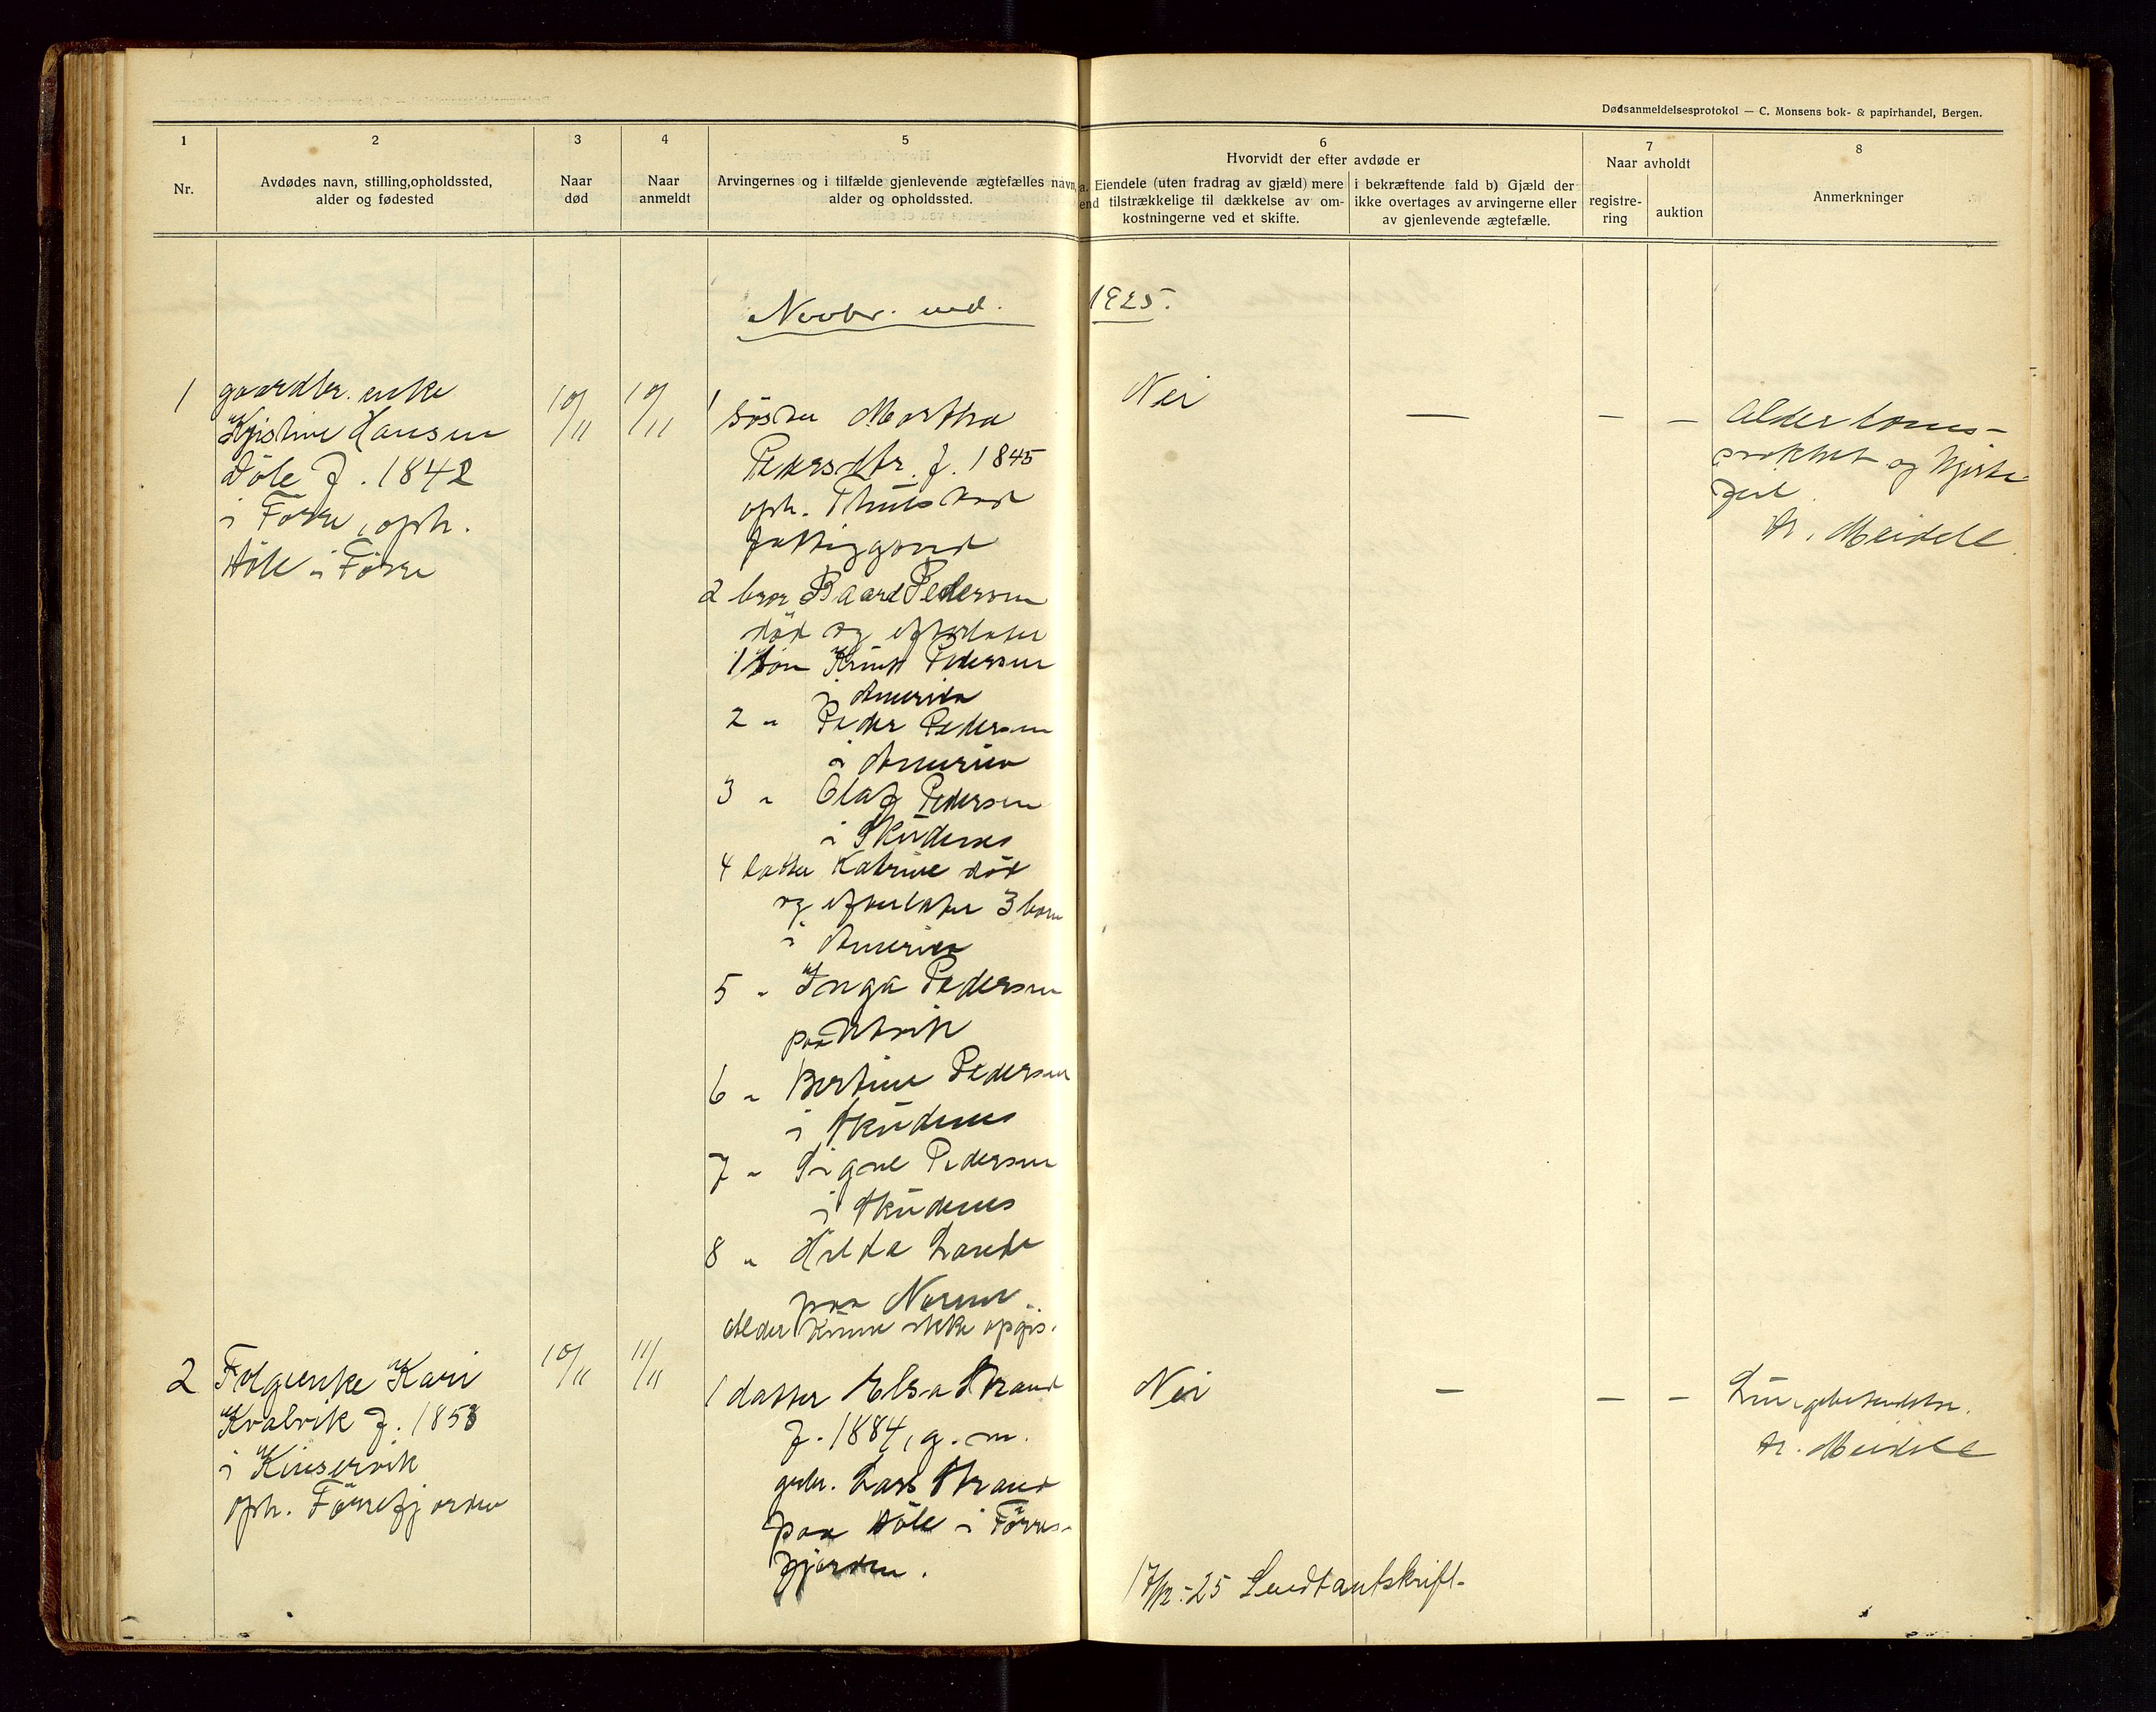 Dødsanmeldelsesprotokol — C. Monsens bok- & papirhandel, Bergen.
1
Nr.
2
Avdødes navn, stilling, opholdssted,
alder og fødested
3
Naar
død
4
Naar
anmeldt
5
Arvingernes og i tilfælde gjenlevende ægtefælles navn,
alder og opholdssted.
6
Hvorvidt der efter avdøde er
a. Eiendele (uten fradrag av gjæld) mere
end tilstrækkelige til dækkelse av om-
kostningerne ved et skifte.
i bekræftende fald b) Gjæld der
ikke overtages av arvingerne eller
av gjenlevende ægtefælle.
7
Naar avholdt
registre-
ring
auktion
8
Anmerkninger
Novbr. md. 1925.
1
gaardbr. enke
Kristine Hansen
Döle f. 1842
i Förre, oph.
Döle i Förre
10/11
10/11
1 Söster Martha
Pedersdtr. f. 1845
oph.
fattiggaard
2 bror Baard Pedersen
död og efterlater
1 Sön Knut Pedersen
i Amerika
2 " Peder Pedersen
i Amerika
3 " Olaf Pedersen
i Skudenes
4 datter Katrine död
og efterlater 3 barn
i Amerika
5 " Inga Pedersen
paa
6 " Bertine Pedersen
i Skudenes
7 " Signe Pedersen
i Skudenes
8 " Hilda Lande
paa
Alder kunne ikke opgis.
Nei
—
—
—
Alderdoms-
svakhet og hjerte-
feil.
A. Meidell.
2
Folgeenke Kari
Kvalvik f. 1858
i Kinservik
oph. Förrefjorden
10/11
11/11
1 datter Elsa Strand
f. 1884, g. m.
gbr. Lars Strand
paa Döle i Förres-
fjorden.
Nei
—
—
—
Lungebetendelse.
A. Meidell
17/12.-25 Sendt avskrift.